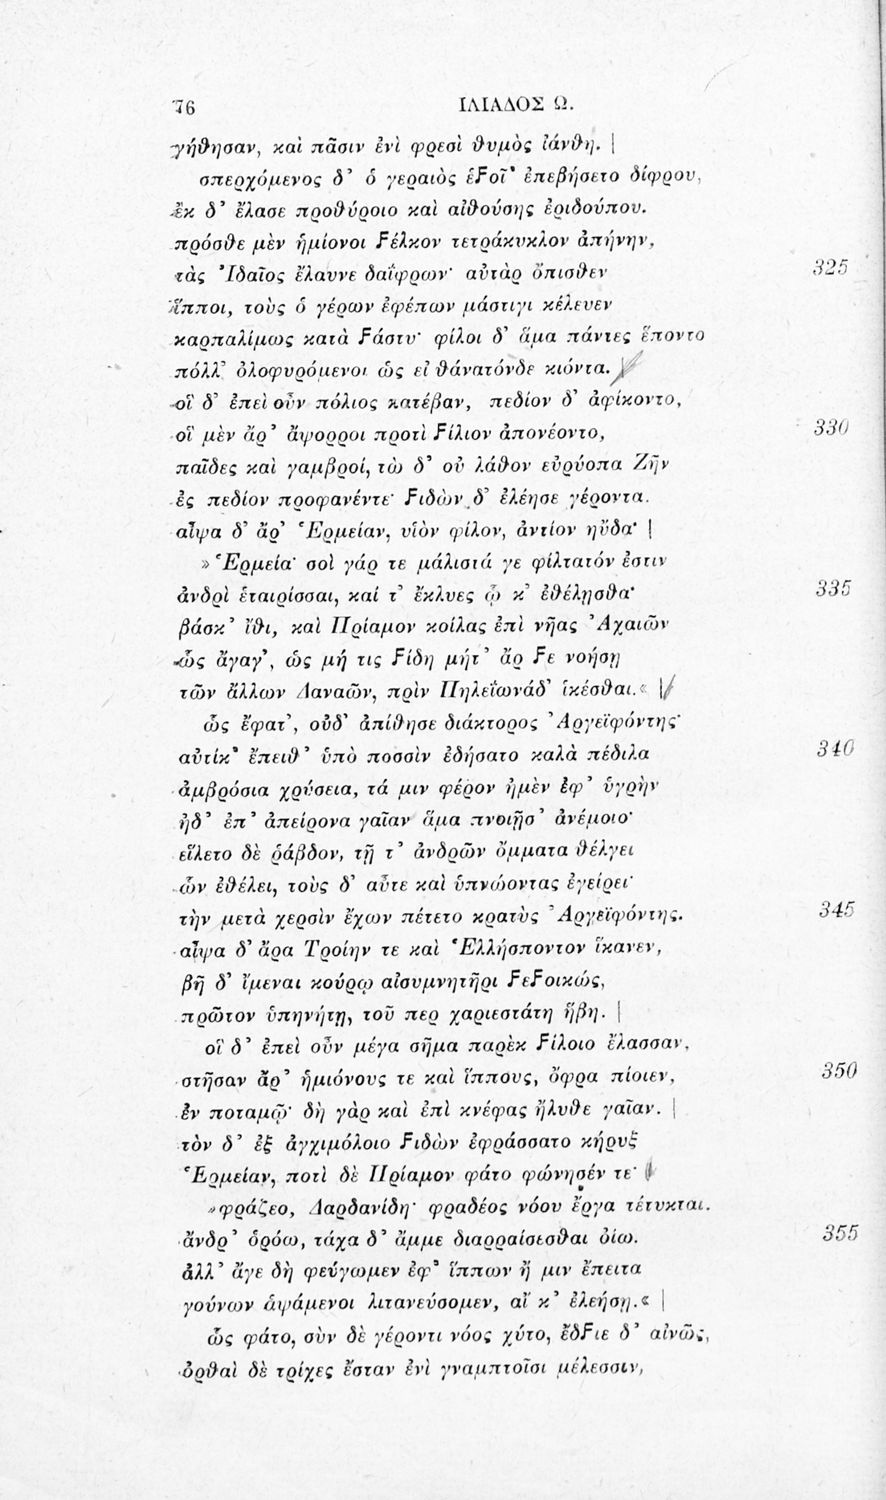 76 ΙΛΙΑΔΟΣ Ω.
γήθησαν, καὶ πᾶσιν ἐνὶ φρεσὶ θυμὸς ἰάνθη. |
σπερχόμενος δ᾽ ὁ γεραιὸς ἑϜοῖ᾽ ἐπεβήσετο δίφρου,
ἐκ δ᾽ ἔλασε προθύροιο καὶ αἰθούσης ἐριδούπου.
πρόσθε μὲν ἡμίονοι Ϝέλκον τετράκυκλον ἀπήνην,
τὰς Ἰδαῖος ἔλαυνε δαΐφρων· αὐτὰρ ὄπισθεν 325
ἵπποι, τοὺς ὁ γέρων ἐφέπων μάστιγι κέλευεν
καρπαλίμως κατὰ Ϝάστυ· φίλοι δ᾽ ἅμα πάντες ἕποντο
πόλλ᾽ ὀλοφυρόμενοι ὡς εἰ θάνατόνδε κιόντα. |
οἳ δ᾽ ἐπεὶ οὖν πόλιος κατέβαν, πεδίον δ᾽ ἀφίκοντο,
οἳ μὲν ἄρ᾽ ἄψορροι προτὶ Ϝίλιον ἀπονέοντο, 330
παῖδες καὶ γαμβροί, τὼ δ᾽ οὐ λάθον εὐρύοπα Ζῆν
ἐς πεδίον προφανέντε· Ϝιδὼν δ᾽ ἐλέησε γέροντα.
αἶψα δ᾽ ἄρ᾽ Ἑρμείαν, υἱὸν φίλον, ἀντίον ηὔδα· |
»Ἑρμεία· σοὶ γάρ τε μάλιστά γε φίλτατόν ἐστιν
ἀνδρὶ ἑταιρίσσαι, καί τ᾽ ἔκλυες ᾧ κ᾽ ἐθέλῃσθα· 335
βάσκ᾽ ἴθι, καὶ Πρίαμον κοίλας ἐπὶ νῆας Ἀχαιῶν
ὣς ἄγαγ᾽, ὡς μή τις Ϝίδῃ μήτ᾽ ἄρ Ϝε νοήσῃ
τῶν ἄλλων Δαναῶν, πρὶν Πηλεϊωνάδ᾽ ἱκέσθαι.« |
ὣς ἔφατ᾽, οὐδ᾽ ἀπίθησε διάκτορος Ἀργεϊφόντης·
αὐτίκ᾽ ἔπειθ᾽ ὑπὸ ποσσὶν ἐδήσατο καλὰ πέδιλα 340
ἀμβρόσια χρύσεια, τά μιν φέρον ἠμὲν ἐφ᾽ ὑγρὴν
ἠδ᾽ ἐπ᾽ ἀπείρονα γαῖαν ἅμα πνοιῇσ᾽ ἀνέμοιο·
εἵλετο δὲ ῥάβδον, τῇ τ᾽ ἀνδρῶν ὄμματα θέλγει
ὧν ἐθέλει, τοὺς δ᾽ αὖτε καὶ ὑπνώοντας ἐγείρει·
τὴν μετὰ χερσὶν ἔχων πέτετο κρατὺς Ἀργεϊφόντης. 345
αἶψα δ᾽ ἄρα Τροίην τε καὶ Ἑλλήσποντον ἵκανεν,
βῆ δ᾽ ἴμεναι κούρῳ αἰσυμνητῆρι ϜεϜοικώς,
πρῶτον ὑπηνήτῃ, τοῦ περ χαριεστάτη ἥβη. |
οἳ δ᾽ ἐπεὶ οὖν μέγα σῆμα παρὲκ Ϝίλοιο ἔλασσαν,
στῆσαν ἄρ᾽ ἡμιόνους τε καὶ ἵππους, ὄφρα πίοιεν, 350
ἐν ποταμῷ· δὴ γὰρ καὶ ἐπὶ κνέφας ἤλυθε γαῖαν. |
τὸν δ᾽ ἐξ ἀγχιμόλοιο Ϝιδὼν ἐφράσσατο κήρυξ
Ἑρμείαν, ποτὶ δὲ Πρίαμον φάτο φώνησέν τε· |
»φράζεο, Δαρδανίδη· φραδέος νόου ἔργα τέτυκται.
ἄνδρ᾽ ὁρόω, τάχα δ᾽ ἄμμε διαρραίσεσθαι ὀίω. 355
ἀλλ᾽ ἄγε δὴ φεύγωμεν ἐφ᾽ ἵππων ἤ μιν ἔπειτα
γούνων ἁψάμενοι λιτανεύσομεν, αἴ κ᾽ ἐλεήσῃ.« |
ὣς φάτο, σὺν δὲ γέροντι νόος χύτο, ἔδϜιε δ᾽ αἰνῶς,
ὀρθαὶ δὲ τρίχες ἔσταν ἐνὶ γναμπτοῖσι μέλεσσιν,